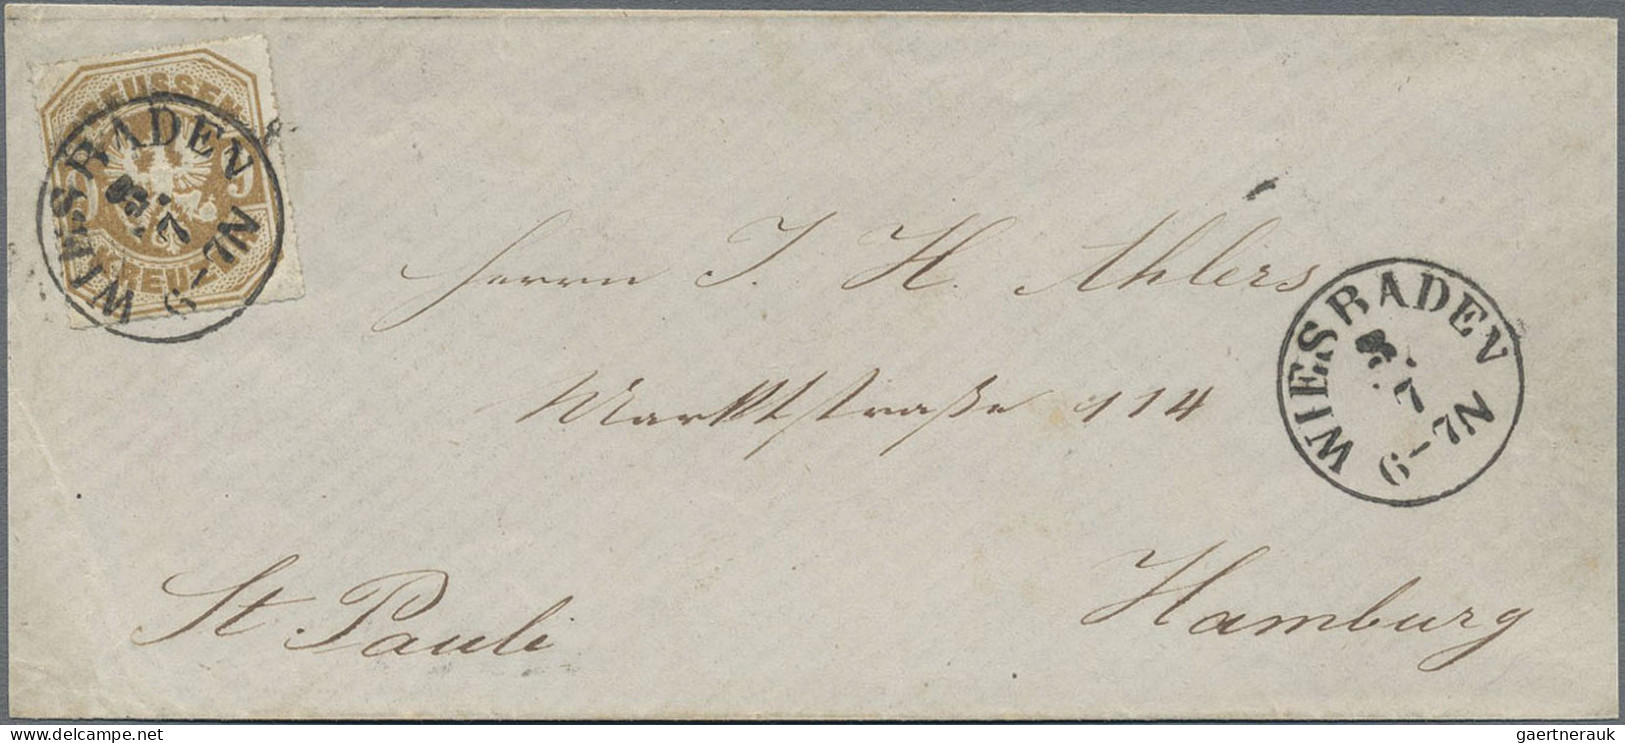 PREUSSEN
9
KREUZ
WIESBADEN
7
6-7N
Herrn J. H. Ahlers
Marktstraße 114
St. Pauli
Hamburg
WIESBADEN
7
6-7N
gaertnerauk